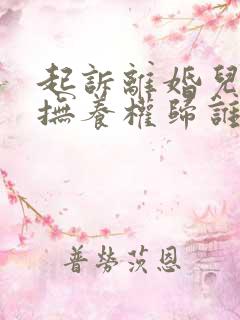 起訴離婚兒
撫養權歸誰
普勞茨恩